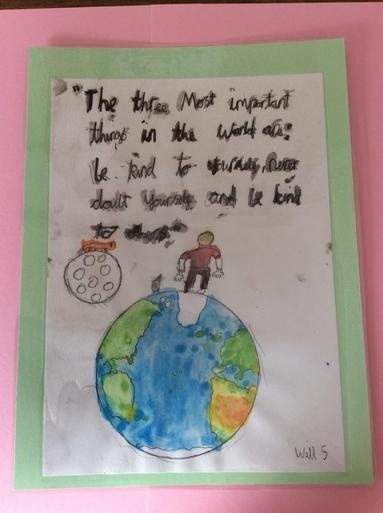 "The three Most important
things in the World are:
be kind to yourself, never
doubt yourself and be kind
to others"
Will S